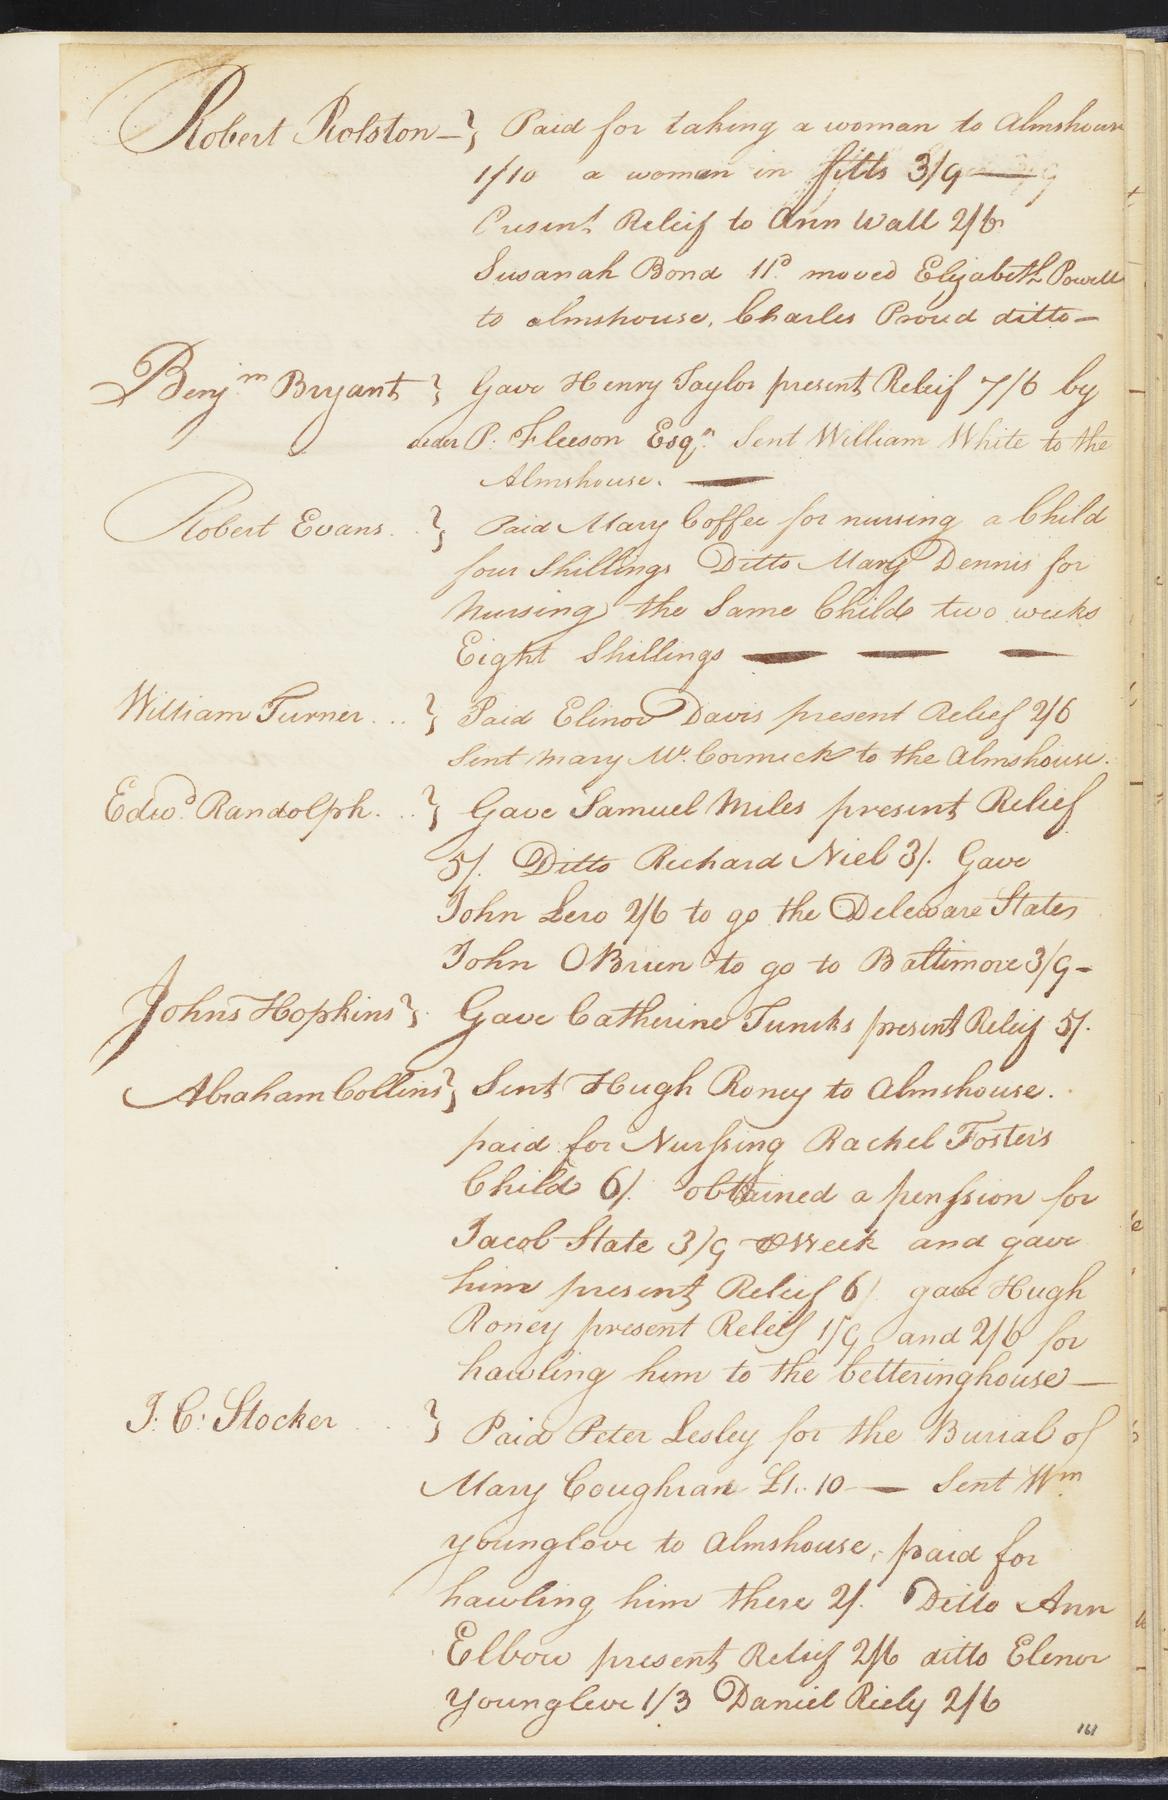 Robert Rolston — } Paid for taking a woman to Almshouse
1/10 a woman in fitts 3/9 —
Present Releif to Ann Wall 2/6
Susanah Bond 11d. moved Elizabeth Powell
to almshouse, Charles Proud ditto —
Benjm Bryant } Gave Henry Taylor present Releif 7/6 by
order P. Fleeson Esqr. Sent William White to the
Almshouse. —
Robert Evans . . } Paid Mary Coffee for nursing a Child
four Shillings Ditto Mary Dennis for
Nursing the Same Child two weeks
Eight Shillings — — —
William Turner . . . } Paid Elinor Davis present Relief 2/6
Sent Mary Mc. Cormick to the Almshouse.
Edwd. Randolph . . . } Gave Samuel Miles present Relief
5/. Ditto Richard Niel 3/. Gave
John Lero 2/6 to go the Deleware States
John OBrien to go to Baltimore 3/9 -
Johns Hopkins } Gave Catherine present Releif 5/.
Abraham Collins } Sent Hugh Roney to Almshouse.
paid for Nurssing Rachel Foster's
Child 6/. obtained a penssion for
Jacob State 3/9 ⅌ Week and gave
him present Releif 6/ gave Hugh
Roney present Releif 1/9 and 2/6 for
hawling him to the betteringhouse —
J. C. Stocker . . } Paid Peter Lesley for the Burial of
Mary Coughran £1..10 — Sent Wm
Younglove to Almshouse, paid for
hawling him there 2/. Ditto Ann
Elbow present Releif 2/6 ditto Elenor
Younglove 1/3 Daniel Riely 2/6
161